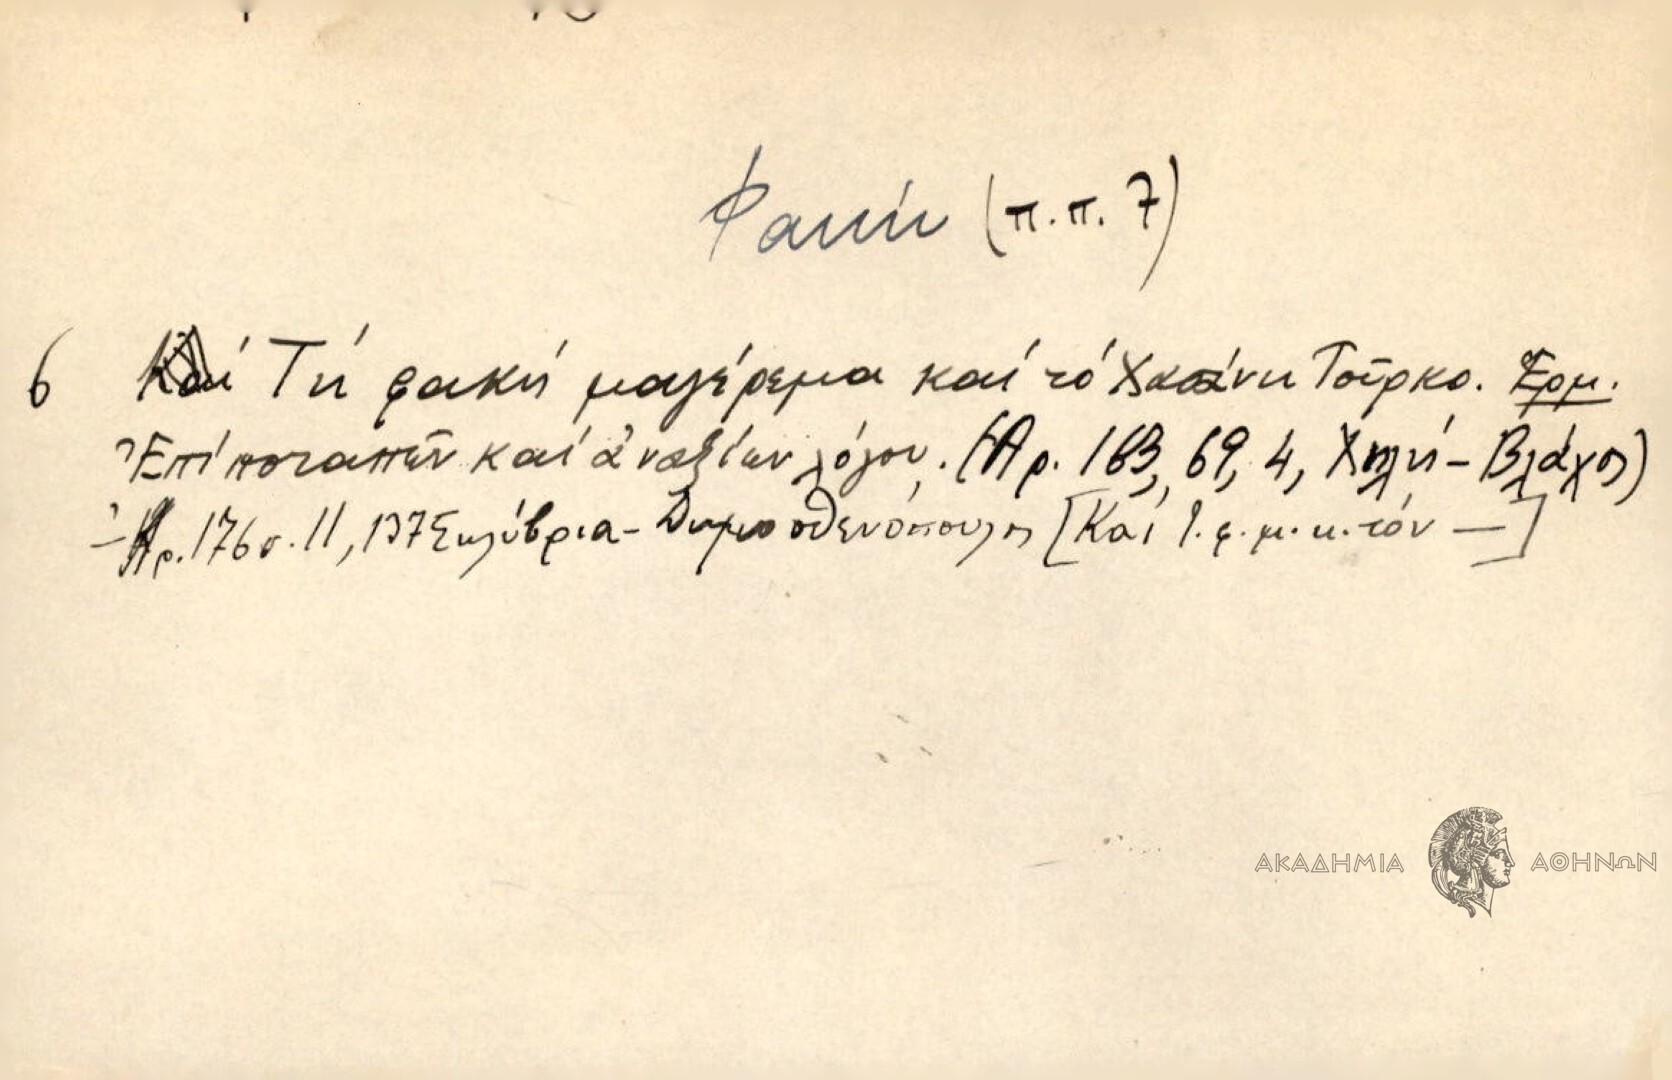 Φακή (π.π. 7)
6 Καί Τή φακή μαγέρεμα καί τό Χασάνη Τοῦρκο. Ἑρμ.
Ἐπί ποταπῶν καί ἀναξίων λόγου. (Ἀρ. 163, 69, 4, Χηλή - Βλάχος)
- Ἀρ. 176 σ. 11, 137 Σηλύβρια - Δημοσθενόπουλος [Καί τ. φ. μ. κ. τόν —]
ΑΚΑΔΗΜΙΑ ΑΘΗΝΩΝ